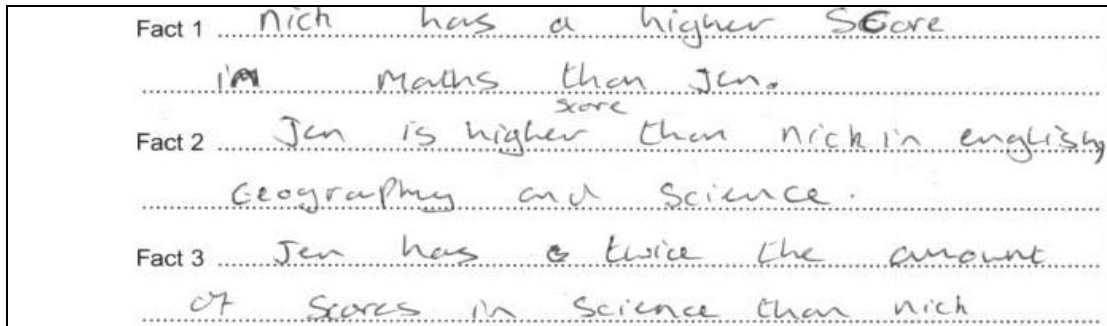 Fact 1 nich has a higher Score
in Maths than Jen.
score
Fact 2 Jen is higher than nick in english,
Geography and Science.
Fact 3 Jen has twice the amount
of scores in science than nich